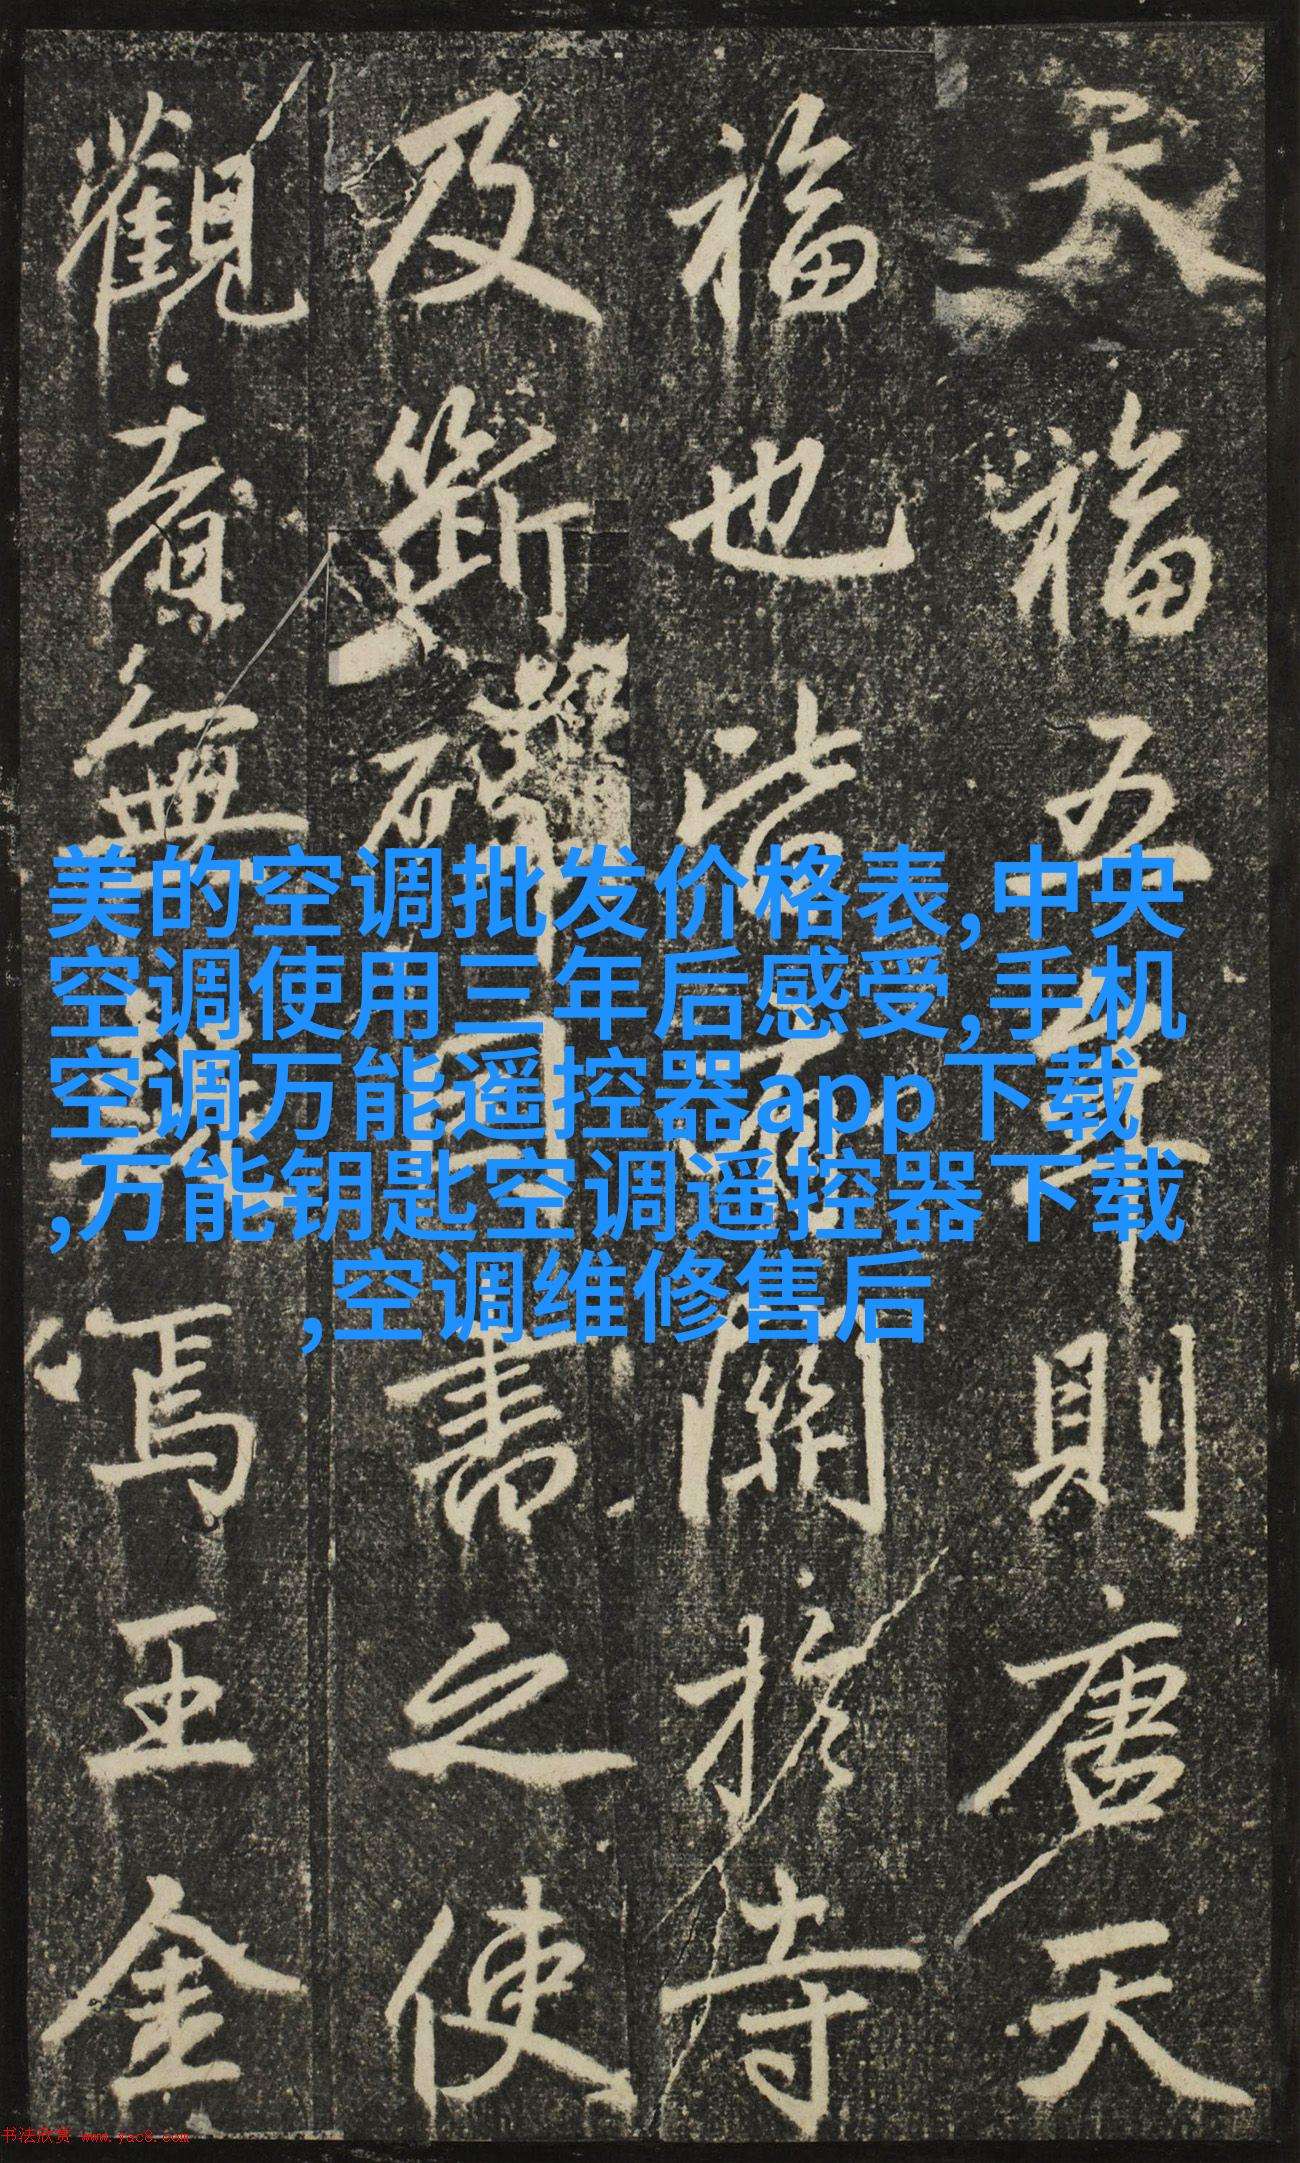 天福五年則唐天
福也皆關於寺
及斷碑書之使
觀者無焉王金
美的空调批发价格表,中央
空调使用三年后感受,手机
空调万能遥控器app下载
,万能钥匙空调遥控器下载
,空调维修售后
书法欣赏 www.yac8.com